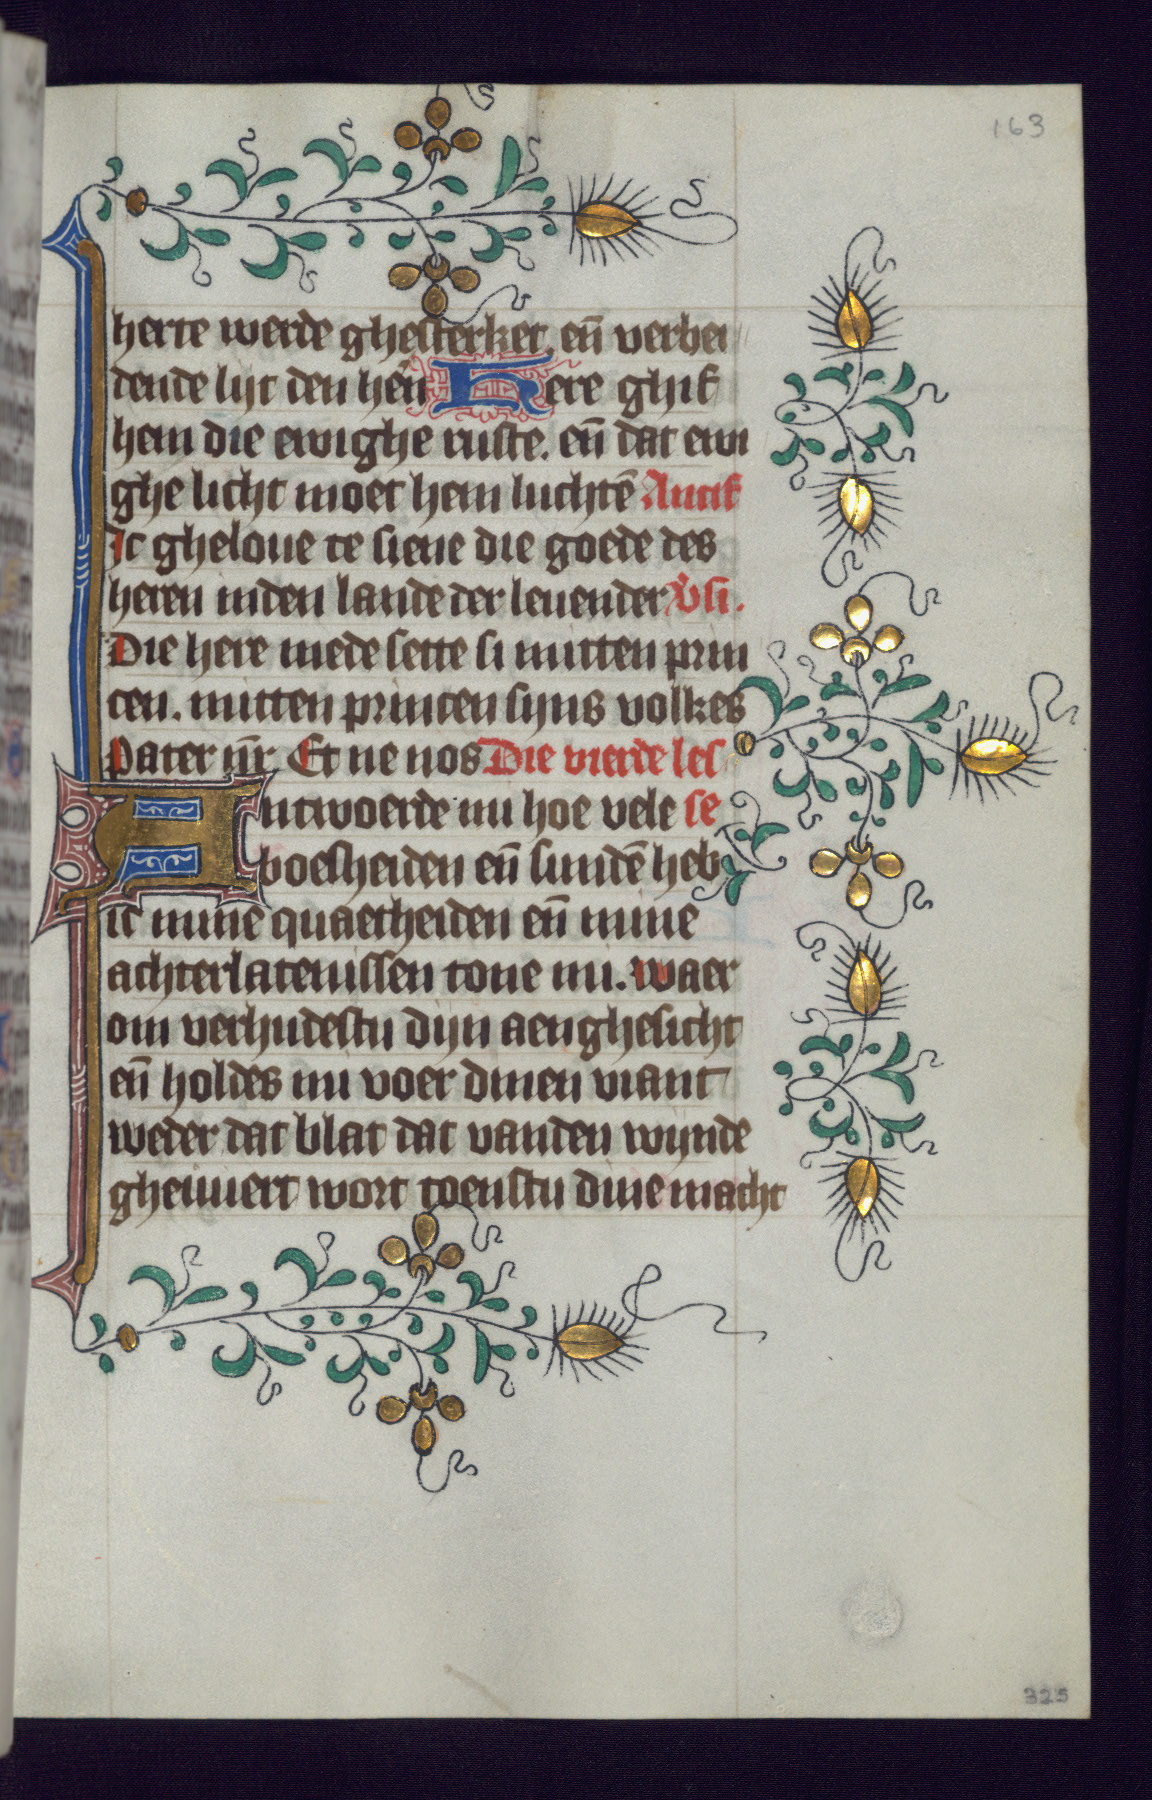 163
herte werde ghesterket. en̄ verbei
dende lijt den hēn Here ghif
hem die ewighe ruste. en̄ dat ewi
ghe licht moet hem luchtē Antif
Ic gheloue te siene die goede des
heren inden lande der leuender v̓si.
Die here mede sette si mitten prin
cen. mitten princen sijns volkes
Pater nr̄. Et ne nos Die vierde les
Antwoerde mi hoe vele se
boesheiden en̄ sundē heb
ic mine quaetheiden en̄ mine
achterlatenissen tone mi. Waer
om verhudestu dijn aenghesicht
en̄ holdes mi voer dinen viant
weder dat blat dat vanden wijnde
gheuuert wort toenstu dine macht
325